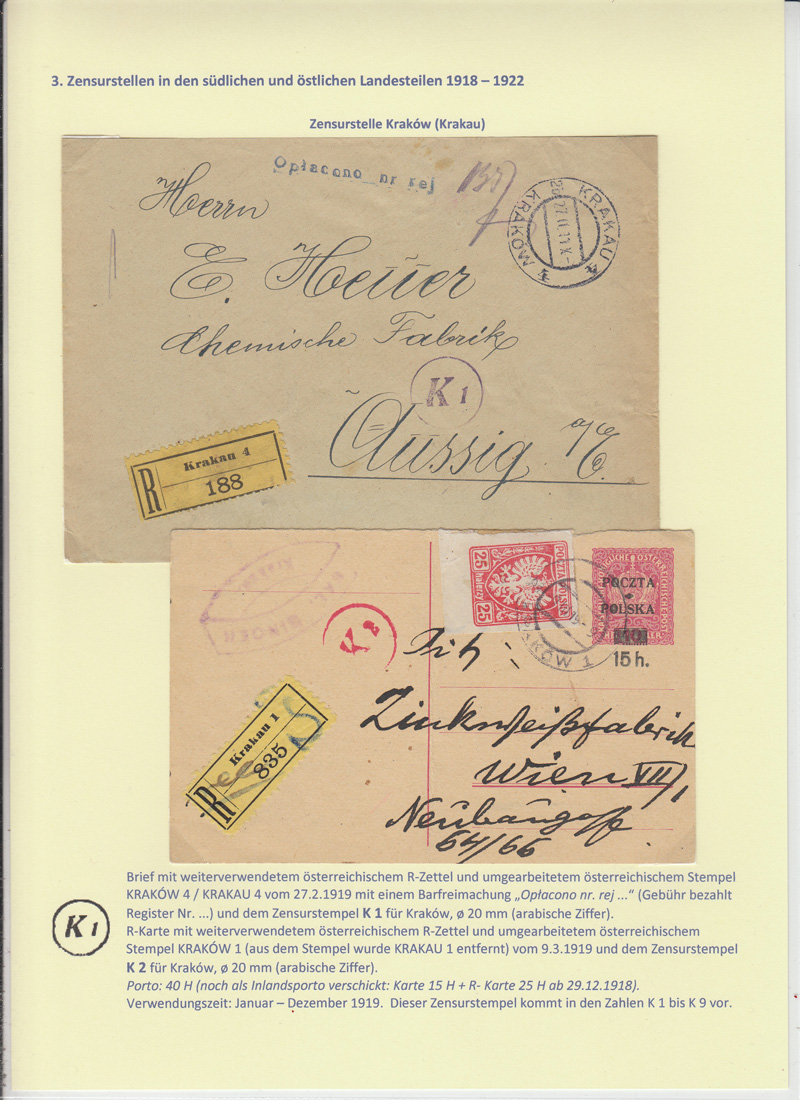 3. Zensurstellen in den südlichen und östlichen Landesteilen 1918 – 1922
Zensurstelle Kraków (Krakau)
Opłacono nr rej
KRAKAU 4
KRAKÓW 4
Herrn
E. Heuer
Chemische Fabrik
K 1
Aussig a/E.
R
Krakau 4
188
25
25
POCZTA POLSKA
POCZTA
POLSKA
15 h.
KRAKÓW 1
K 2
Zinkweißfabrik
Wien VII/1
Neubaugasse
64/66
R
Krakau 1
835
Brief mit weiterverwendetem österreichischem R-Zettel und umgearbeitetem österreichischem Stempel
KRAKÓW 4 / KRAKAU 4 vom 27.2.1919 mit einem Barfreimachung „Opłacono nr. rej ...“ (Gebühr bezahlt
Register Nr. ...) und dem Zensurstempel K 1 für Kraków, ø 20 mm (arabische Ziffer).
R-Karte mit weiterverwendetem österreichischem R-Zettel und umgearbeitetem österreichischem
Stempel KRAKÓW 1 (aus dem Stempel wurde KRAKAU 1 entfernt) vom 9.3.1919 und dem Zensurstempel
K 2 für Kraków, ø 20 mm (arabische Ziffer).
Porto: 40 H (noch als Inlandsporto verschickt: Karte 15 H + R- Karte 25 H ab 29.12.1918).
Verwendungszeit: Januar – Dezember 1919. Dieser Zensurstempel kommt in den Zahlen K 1 bis K 9 vor.
K 1